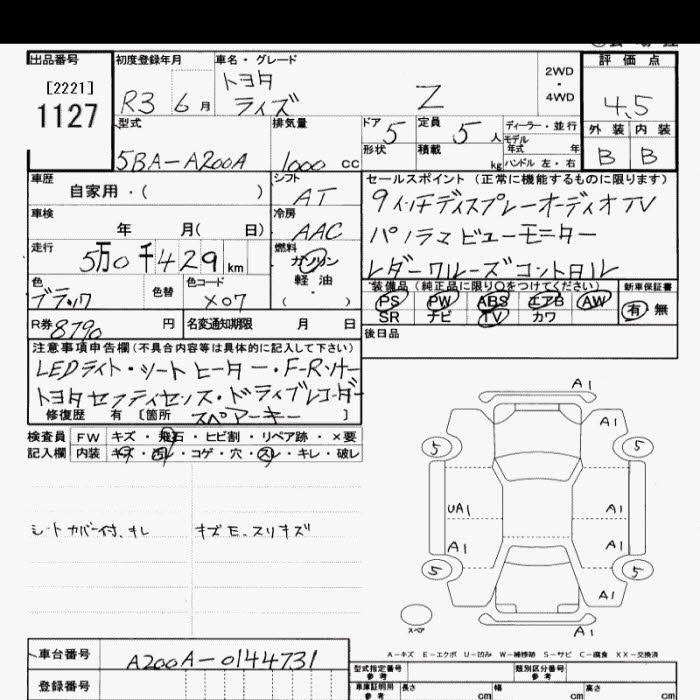 出品番号
[2221]
1127
初度登録年月
R3 6月
車名・グレード
トヨタ
ライズ
Z
2WD
・
4WD
評価点
4.5
外装 内装
B B
型式
5BA-A200A
排気量
1000 cc
ドア 5
定員 5 人
形状
積載 kg
ディーラー・並行
モデル年式 年
ハンドル 左・右
車歴
自家用・( )
シフト
AT
セールスポイント (正常に機能するものに限ります)
9インチディスプレーオーディオTV
パノラマビューモニター
レダークルーズコントロル
車検
年 月( 日)
冷房
AAC
走行
5万0千429km
燃料
ガソリン
軽油
・( )
色
ブラック
色替
色コード
X07
装備品(純正品に限り○をつけてください)
PS PW ABS エアB AW
SR ナビ TV カワ
新車保証書
有・無
R券 8790 円
名変通知期限 月 日
後日品
注意事項申告欄(不具合内容等は具体的に記入して下さい)
LEDライト・シートヒーター・F-Rソナー
トヨタセフティセンス・ドライブレコーダー
修復歴 有 〔箇所 スペアーキー 〕
検査員 FW キズ・飛石・ヒビ割・リペア跡・×要
記入欄 内装 キズ・凹・コゲ・穴・スレ・キレ・破レ
シートカバー付、キレ
キズE、スリキズ
A1
A1
5 5
UA1 A1
A1 A1
5 5
A1
A1
スペア
A-キズ E-エクボ U-凹み W-補修跡 S-サビ C-腐食 XX-交換済
車台番号
A200A-0144731
登録番号
型式指定番号
参考
類別区分番号
参考
車庫証明用
参考
長さ cm
幅 cm
高さ cm